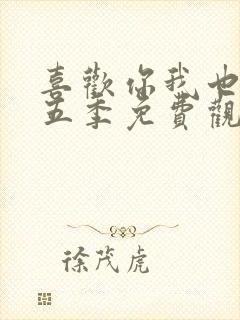 喜歡你我也
五季免費觀
徐茂虎